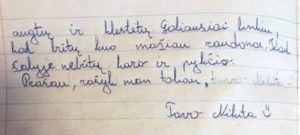 augtų ir klestėtų. Galiausiai linkiu,
kad būtų kuo mažiau raudonos. Kad
šalyje nebūtų karo ir pykčio.
Prašau, rašyk man toliau,
Tavo Nikita